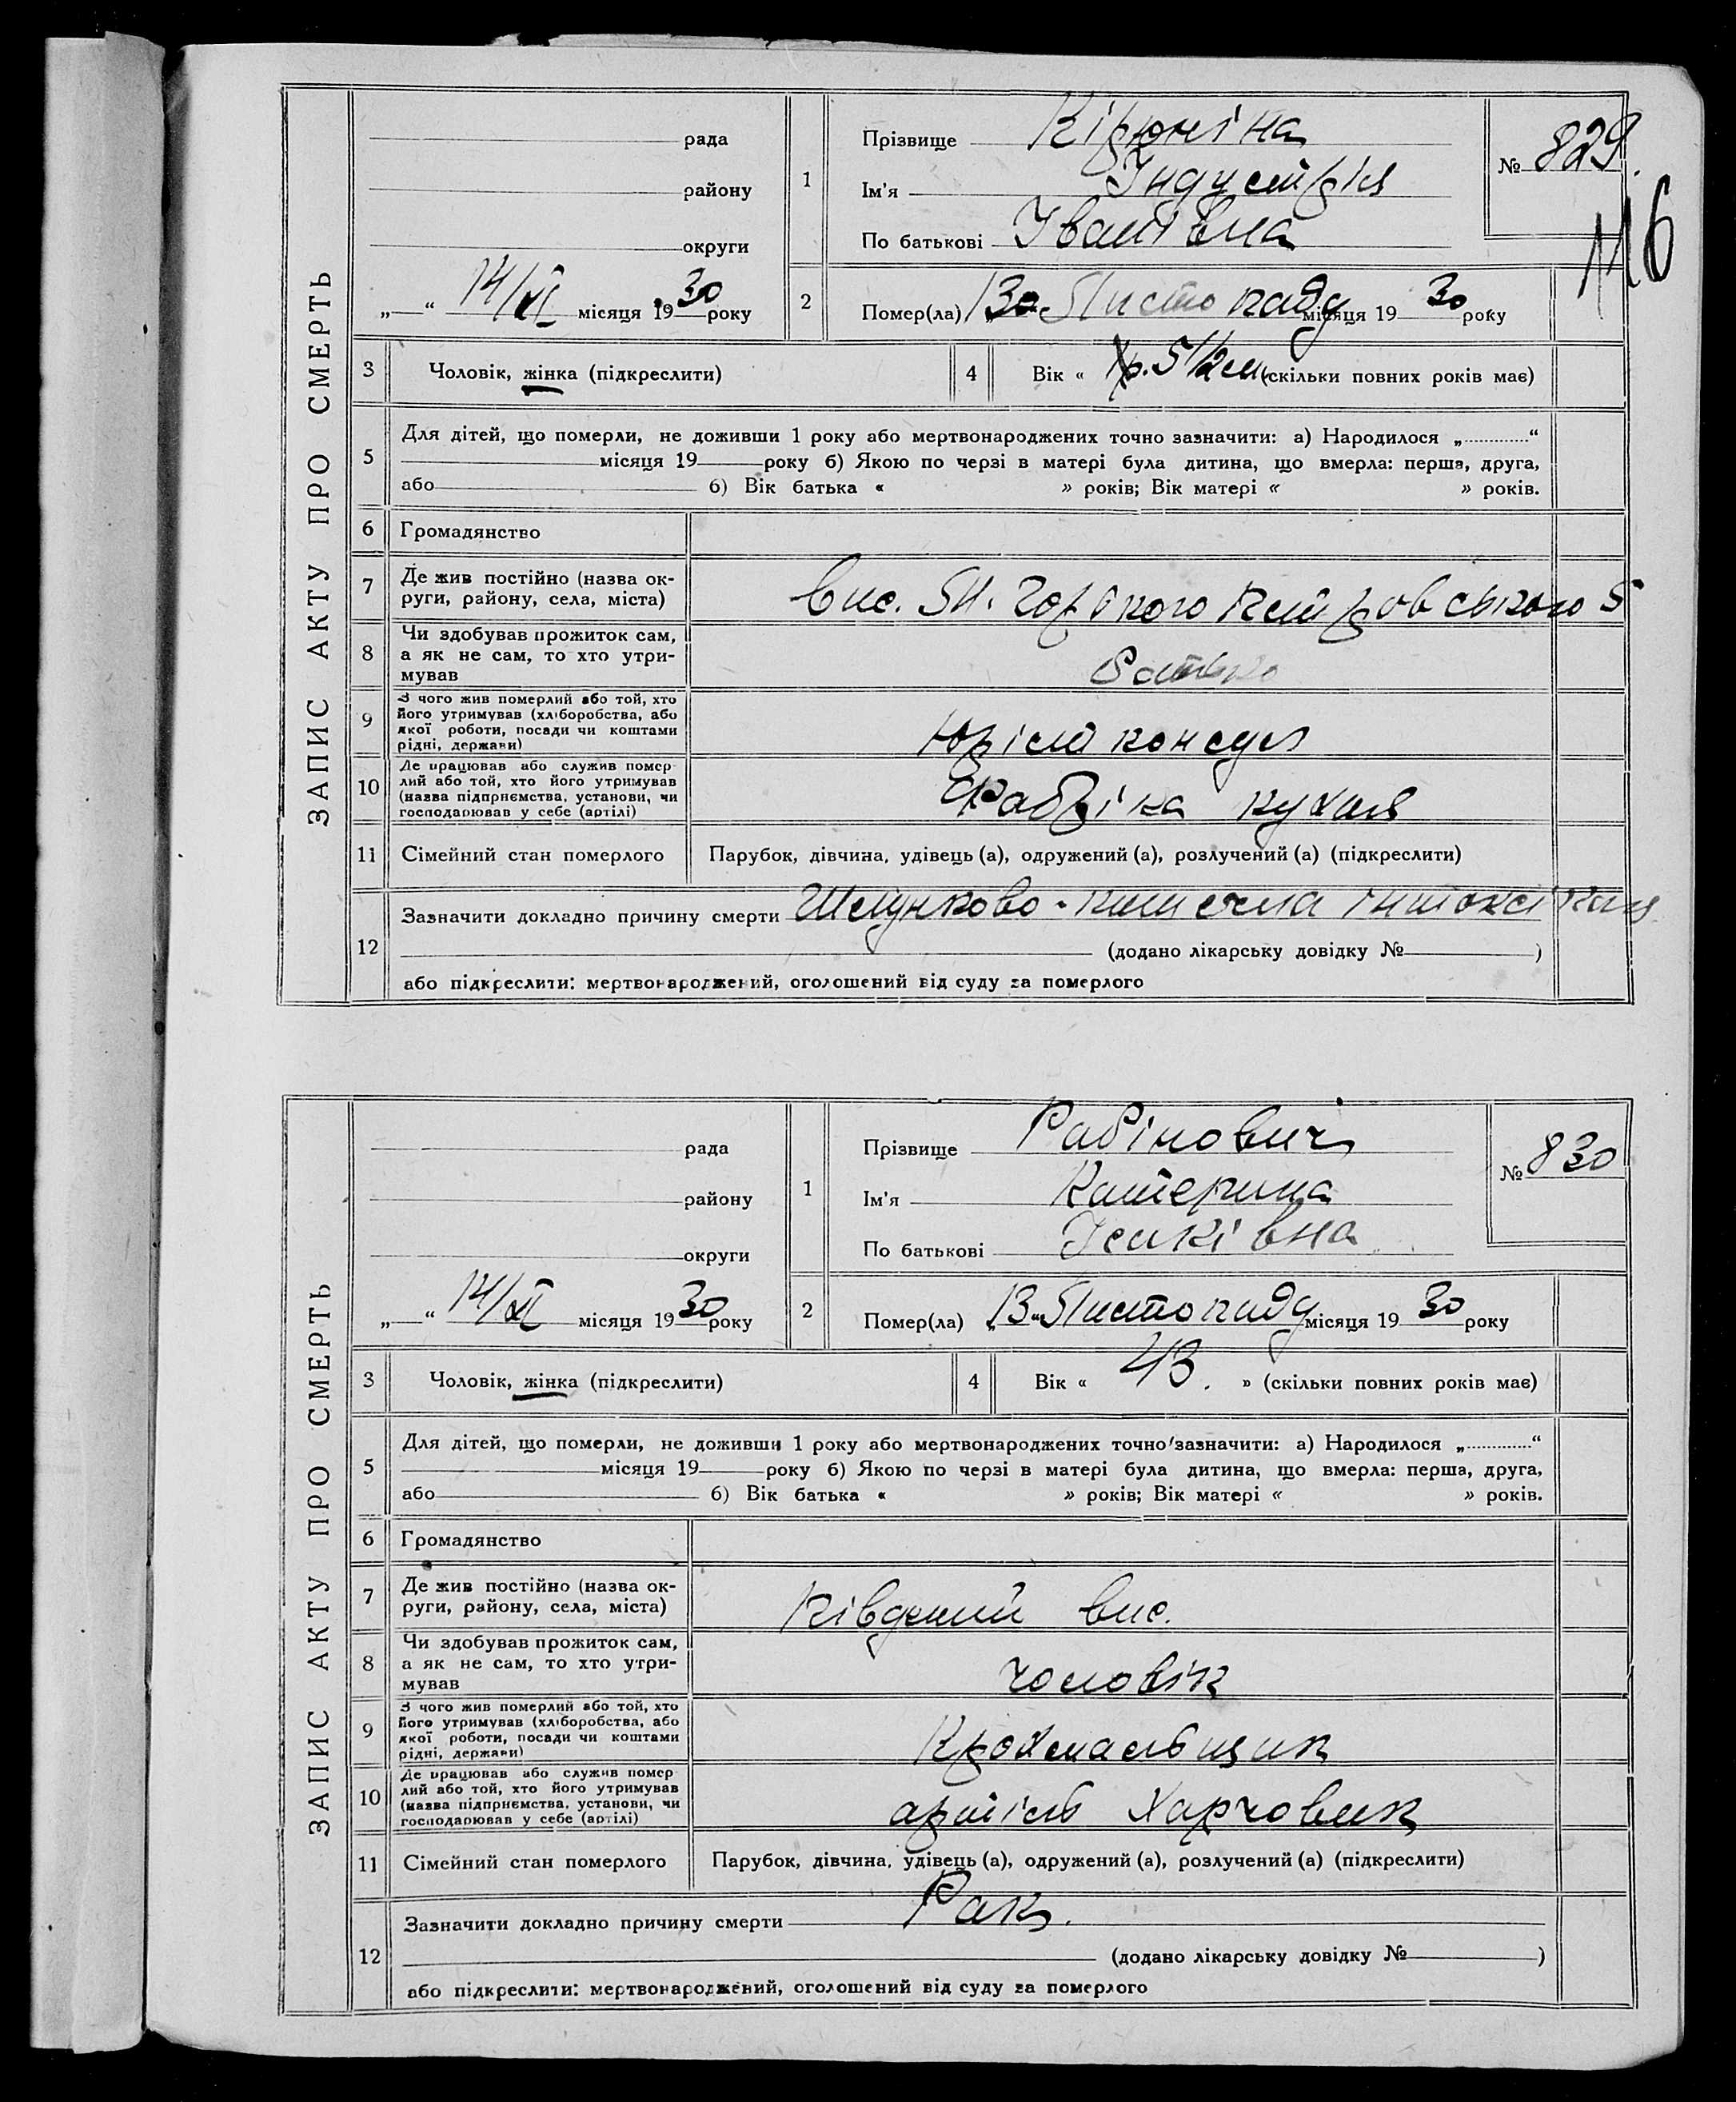 ЗАПИС АКТУ ПРО СМЕРТЬ
рада
району
округи
„ “ 14/XI місяця 1930 року
1
Прізвище Кірюніна
Ім'я Індустрія
По батькові Іванівна
№ 829.
116
2
Помер(ла) 13 Листопаду місяця 1930 року
3 Чоловік, жінка (підкреслити)
4 Вік « 1р. 5 1/2 м. (скільки повних років має)
5
Для дітей, що померли, не доживши 1 року або мертвонароджених точно зазначити: а) Народилося „ “
місяця 19 року б) Якою по черзі в матері була дитина, що вмерла: перша, друга,
або б) Вік батька « » років; Вік матері « » років.
6 Громадянство
7 Де жив постійно (назва ок-
руги, району, села, міста)
вис. М. Горького 5
8 Чи здобував прожиток сам,
а як не сам, то хто утри-
мував
батько
9 З чого жив померлий або той, хто
його утримував (хліборобства, або
якої роботи, посади чи коштами
рідні, держави)
Юрісконсул
10 Де працював або служив помер
лий або той, хто його утримував
(назва підприємства, установи, чи
господарював у себе (артілі)
Фабріка кухня
11 Сімейний стан померлого Парубок, дівчина, удівець (а), одружений (а), розлучений (а) (підкреслити)
12
Зазначити докладно причину смерти Шлунково-кишечна інтоксікація
(додано лікарську довідку № )
або підкреслити: мертвонароджений, оголошений від суду за померлого
ЗАПИС АКТУ ПРО СМЕРТЬ
рада
району
округи
„ “ 14/XI місяця 1930 року
1
Прізвище Рабінович
Ім'я Катерина
По батькові Іцьківна
№ 830
2
Помер(ла) „13“ Листопаду місяця 1930 року
3 Чоловік, жінка (підкреслити)
4 Вік « 43. » (скільки повних років має)
5
Для дітей, що померли, не доживши 1 року або мертвонароджених точно зазначити: а) Народилося „ “
місяця 19 року б) Якою по черзі в матері була дитина, що вмерла: перша, друга,
або б) Вік батька « » років; Вік матері « » років.
6 Громадянство
7 Де жив постійно (назва ок-
руги, району, села, міста)
Південий вис.
8 Чи здобував прожиток сам,
а як не сам, то хто утри-
мував
чоловік
9 З чого жив померлий або той, хто
його утримував (хліборобства, або
якої роботи, посади чи коштами
рідні, держави)
Крохмальщик
10 Де працював або служив помер
лий або той, хто його утримував
(назва підприємства, установи, чи
господарював у себе (артілі)
артіль Харчовик
11 Сімейний стан померлого Парубок, дівчина, удівець (а), одружений (а), розлучений (а) (підкреслити)
12
Зазначити докладно причину смерти Рак.
(додано лікарську довідку № )
або підкреслити: мертвонароджений, оголошений від суду за померлого